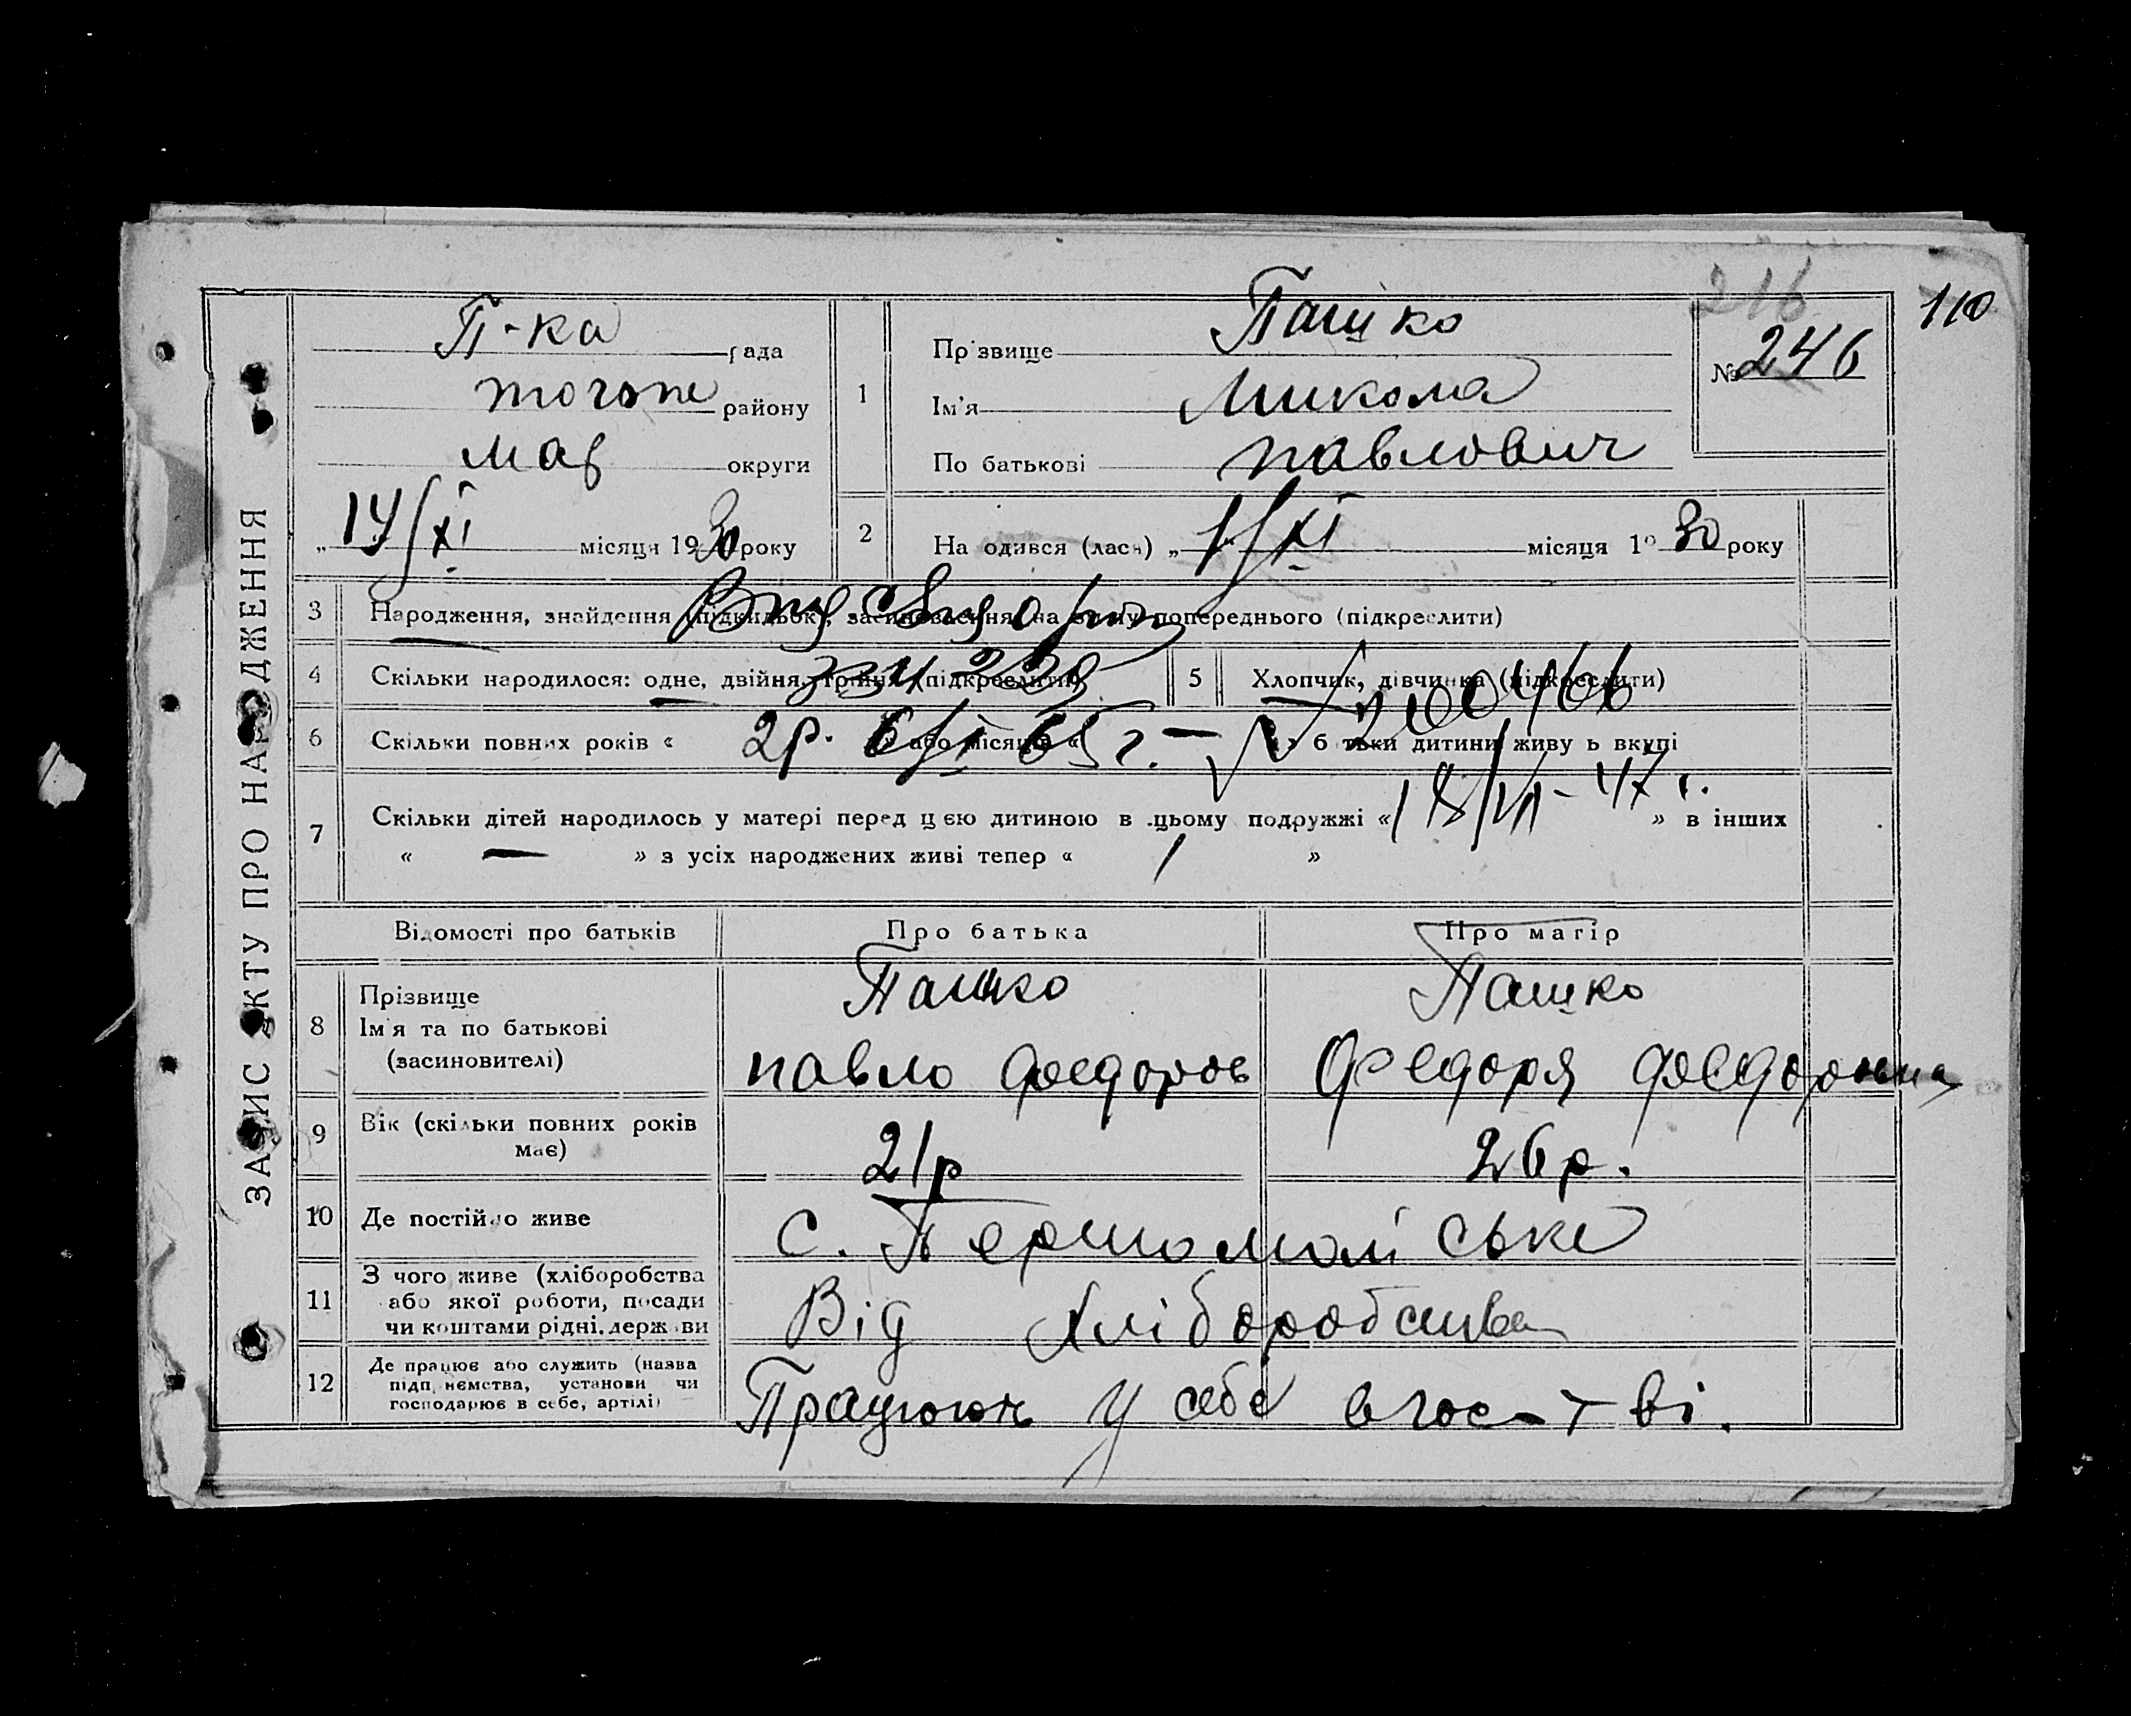 ЗАПИС АКТУ ПРО НАРОДЖЕННЯ
216
110
П-ка рада
тогоже району
Мар округи
14/XI місяця 1930 року
1
Прізвище Пашко
Ім'я Микола
По батькові Павлович
№ 246
2
Народився (лася) „ 1/XI місяця 1930 року
3 Народження, знайдення (підкидьок), засиновлення, на зміну попереднього (підкреслити)
4 Скільки народилося: одне, двійня, трійня (підкреслити)
5 Хлопчик, дівчинка (підкреслити)
6 Скільки повних років « » або місяців « батьки дитини живуть вкупі
2р. 6/I 65 г. —
18/VII-47 г.
7 Скільки дітей народилось у матері перед цією дитиною в цьому подружжі « 1 » в інших
« — » з усіх народжених живі тепер « 1 »
Відомості про батьків Про батька Про матір
8 Прізвище Пашко Пашко
Ім'я та по батькові
(засновителі) Павло Федоров Федоря Федоровна
9 Вік (скільки повних років має) 21р 26р.
10 Де постійно живе с. Першомайське
11 З чого живе (хліборобства
або якої роботи, посади
чи коштами рідні, держави Від хліборобства
12 Де працює або служить (назва
підприємства, установи чи
господарює в себе, артілі) Працюють у себе в гос-тві.